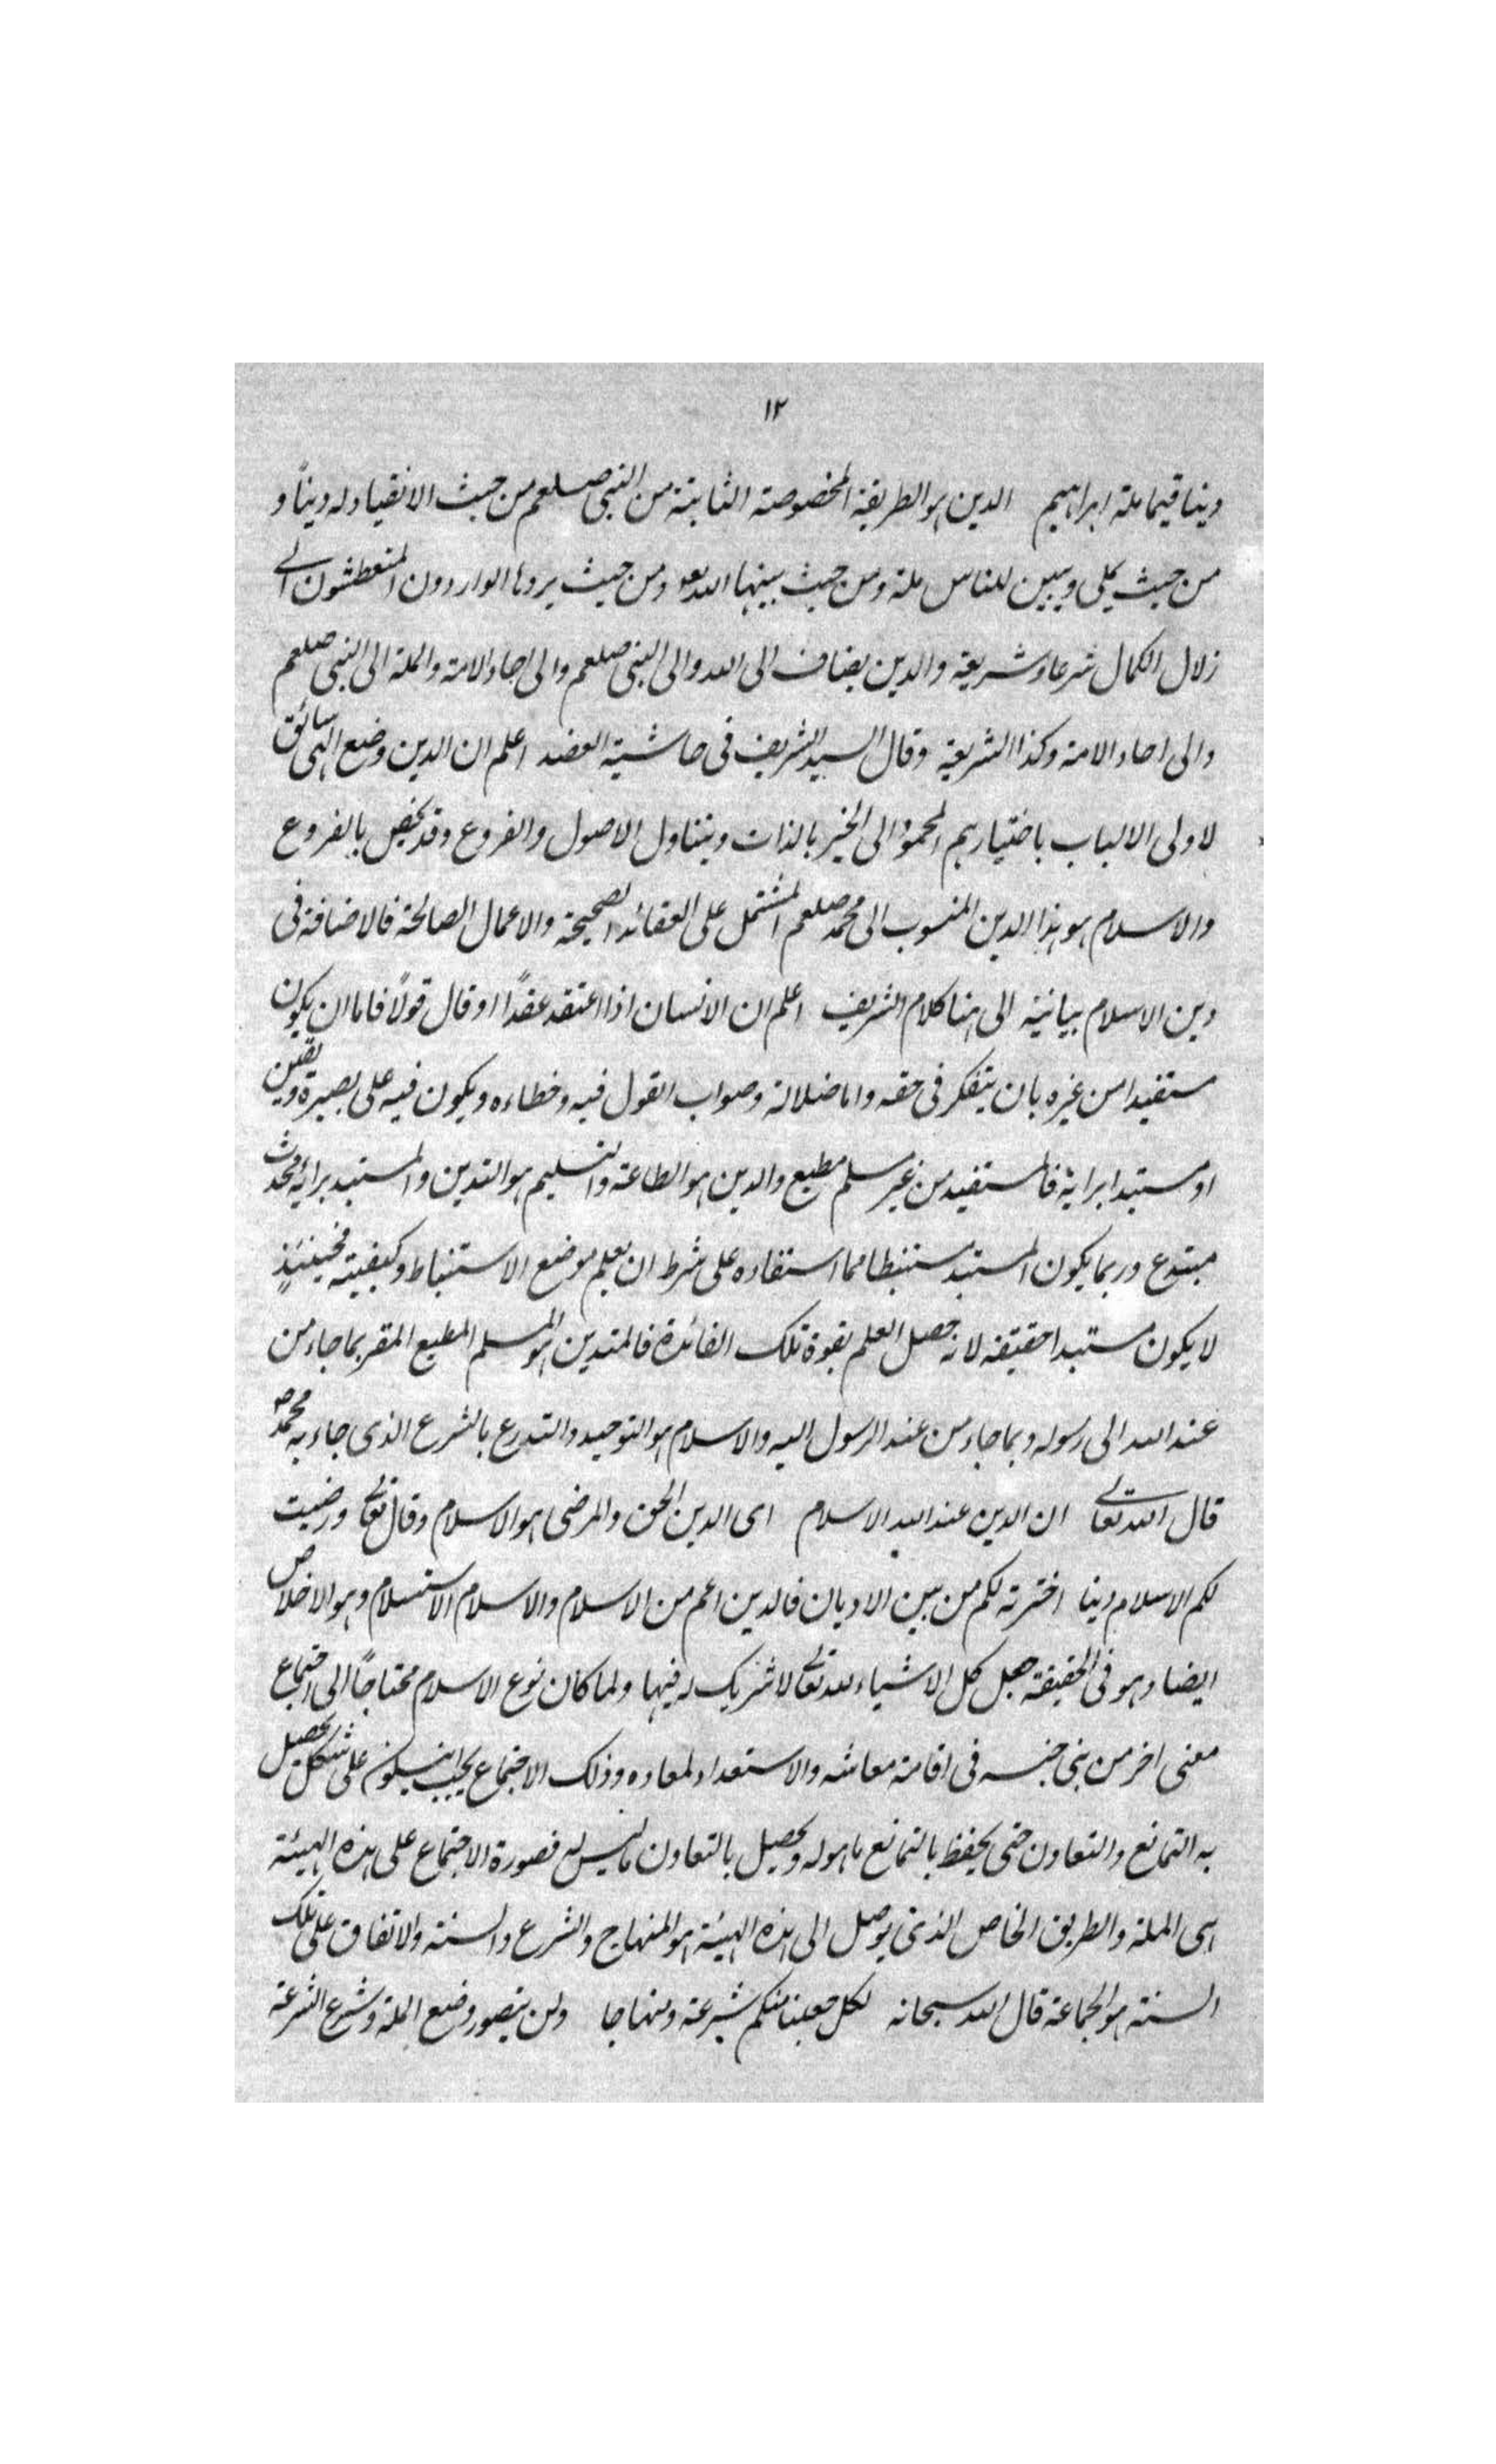 ١٢
دينا قيما ملة ابراهيم الدين هو الطريقة المخصوصة الثابتة من النبى صلعم من حيث الانقياد له ديناً و
من حيث يملى ويبين للناس ملة ومن حيث يبينها الله تعه ومن حيث يردها الواردون المتعطشون الى
زلال الكمال شرعا وشريعة والدين يضاف الى الله والى النبى صلعم والى احاد الامة والملة الى النبى صلعم
والى احاد الامة وكذا الشريعة وقال السيد الشريف فى حاشية العضد اعلم ان الدين وضع الهى سائق
لاولى الالباب باختيارهم المحمود الى الخير بالذات ويتناول الاصول والفروع وقد يخص بالفروع
والاسلام هو هذا الدين المنسوب الى محمد صلعم المشتمل على العقائد الصحيحة والاعمال الصالحة فالاضافة فى
دين الاسلام بيانية الى هنا كلام الشريف اعلم ان الانسان اذا اعتقد عقداً او قال قولاً فاما ان يكون
مستفيدا من غيره بان يتفكر فى حقه واما ضلالة وصواب القول فيه وخطاءه ويكون فيه على بصيرة ويقين
او مستبدا برايه فالمستفيد من غير مسلم مطيع والدين هو الطاعة والتسليم هو التدين والمستبد برايه محدث
مبتدع وربما يكون المستبد مستنبطا مما استفاده على شرط ان يعلم موضع الاستنباط وكيفيته فحينئذٍ
لا يكون مستبدا حقيقة لانه حصل العلم بقوة تلك الفائدة فالمتدين هو المسلم المطيع المقر بما جاء من
عند الله الى رسوله وبما جاء من عند الرسول اليه والاسلام هو التوحيد والتدرع بالشرع الذى جاء به محمد ص
قال الله تعالى ان الدين عند الله الاسلام اى الدين الحق والمرضى هو الاسلام وقال تعالى ورضيت
لكم الاسلام دينا اخترته لكم من بين الاديان فالدين اعم من الاسلام والاسلام الاستسلام وهو الاخلاص
ايضا وهو فى الحقيقة جعل كل الاشياء لله تعالى لا شريك له فيها ولما كان نوع الاسلام محتاجاً الى اجتماع
معنى اخر من بنى جنسه فى اقامة معاشه والاستعداد لمعاده وذلك الاجتماع يجب ان يكون على شكل يحصل
به التمانع والتعاون حتى يحفظ بالتمانع ما هو له ويحصيل بالتعاون ما ليس له فصورة الاجتماع على هذه الهيئة
هى الملة والطريق الخاص الذى يوصل الى هذه الهيئة هو المنهاج والشرع والسنة والاتفاق على تلك
السنة هو الجماعة قال الله سبحانه لكل جعلنا منكم شرعة ومنهاجا ولن يتصور وضع الملة وشرع الشرعة